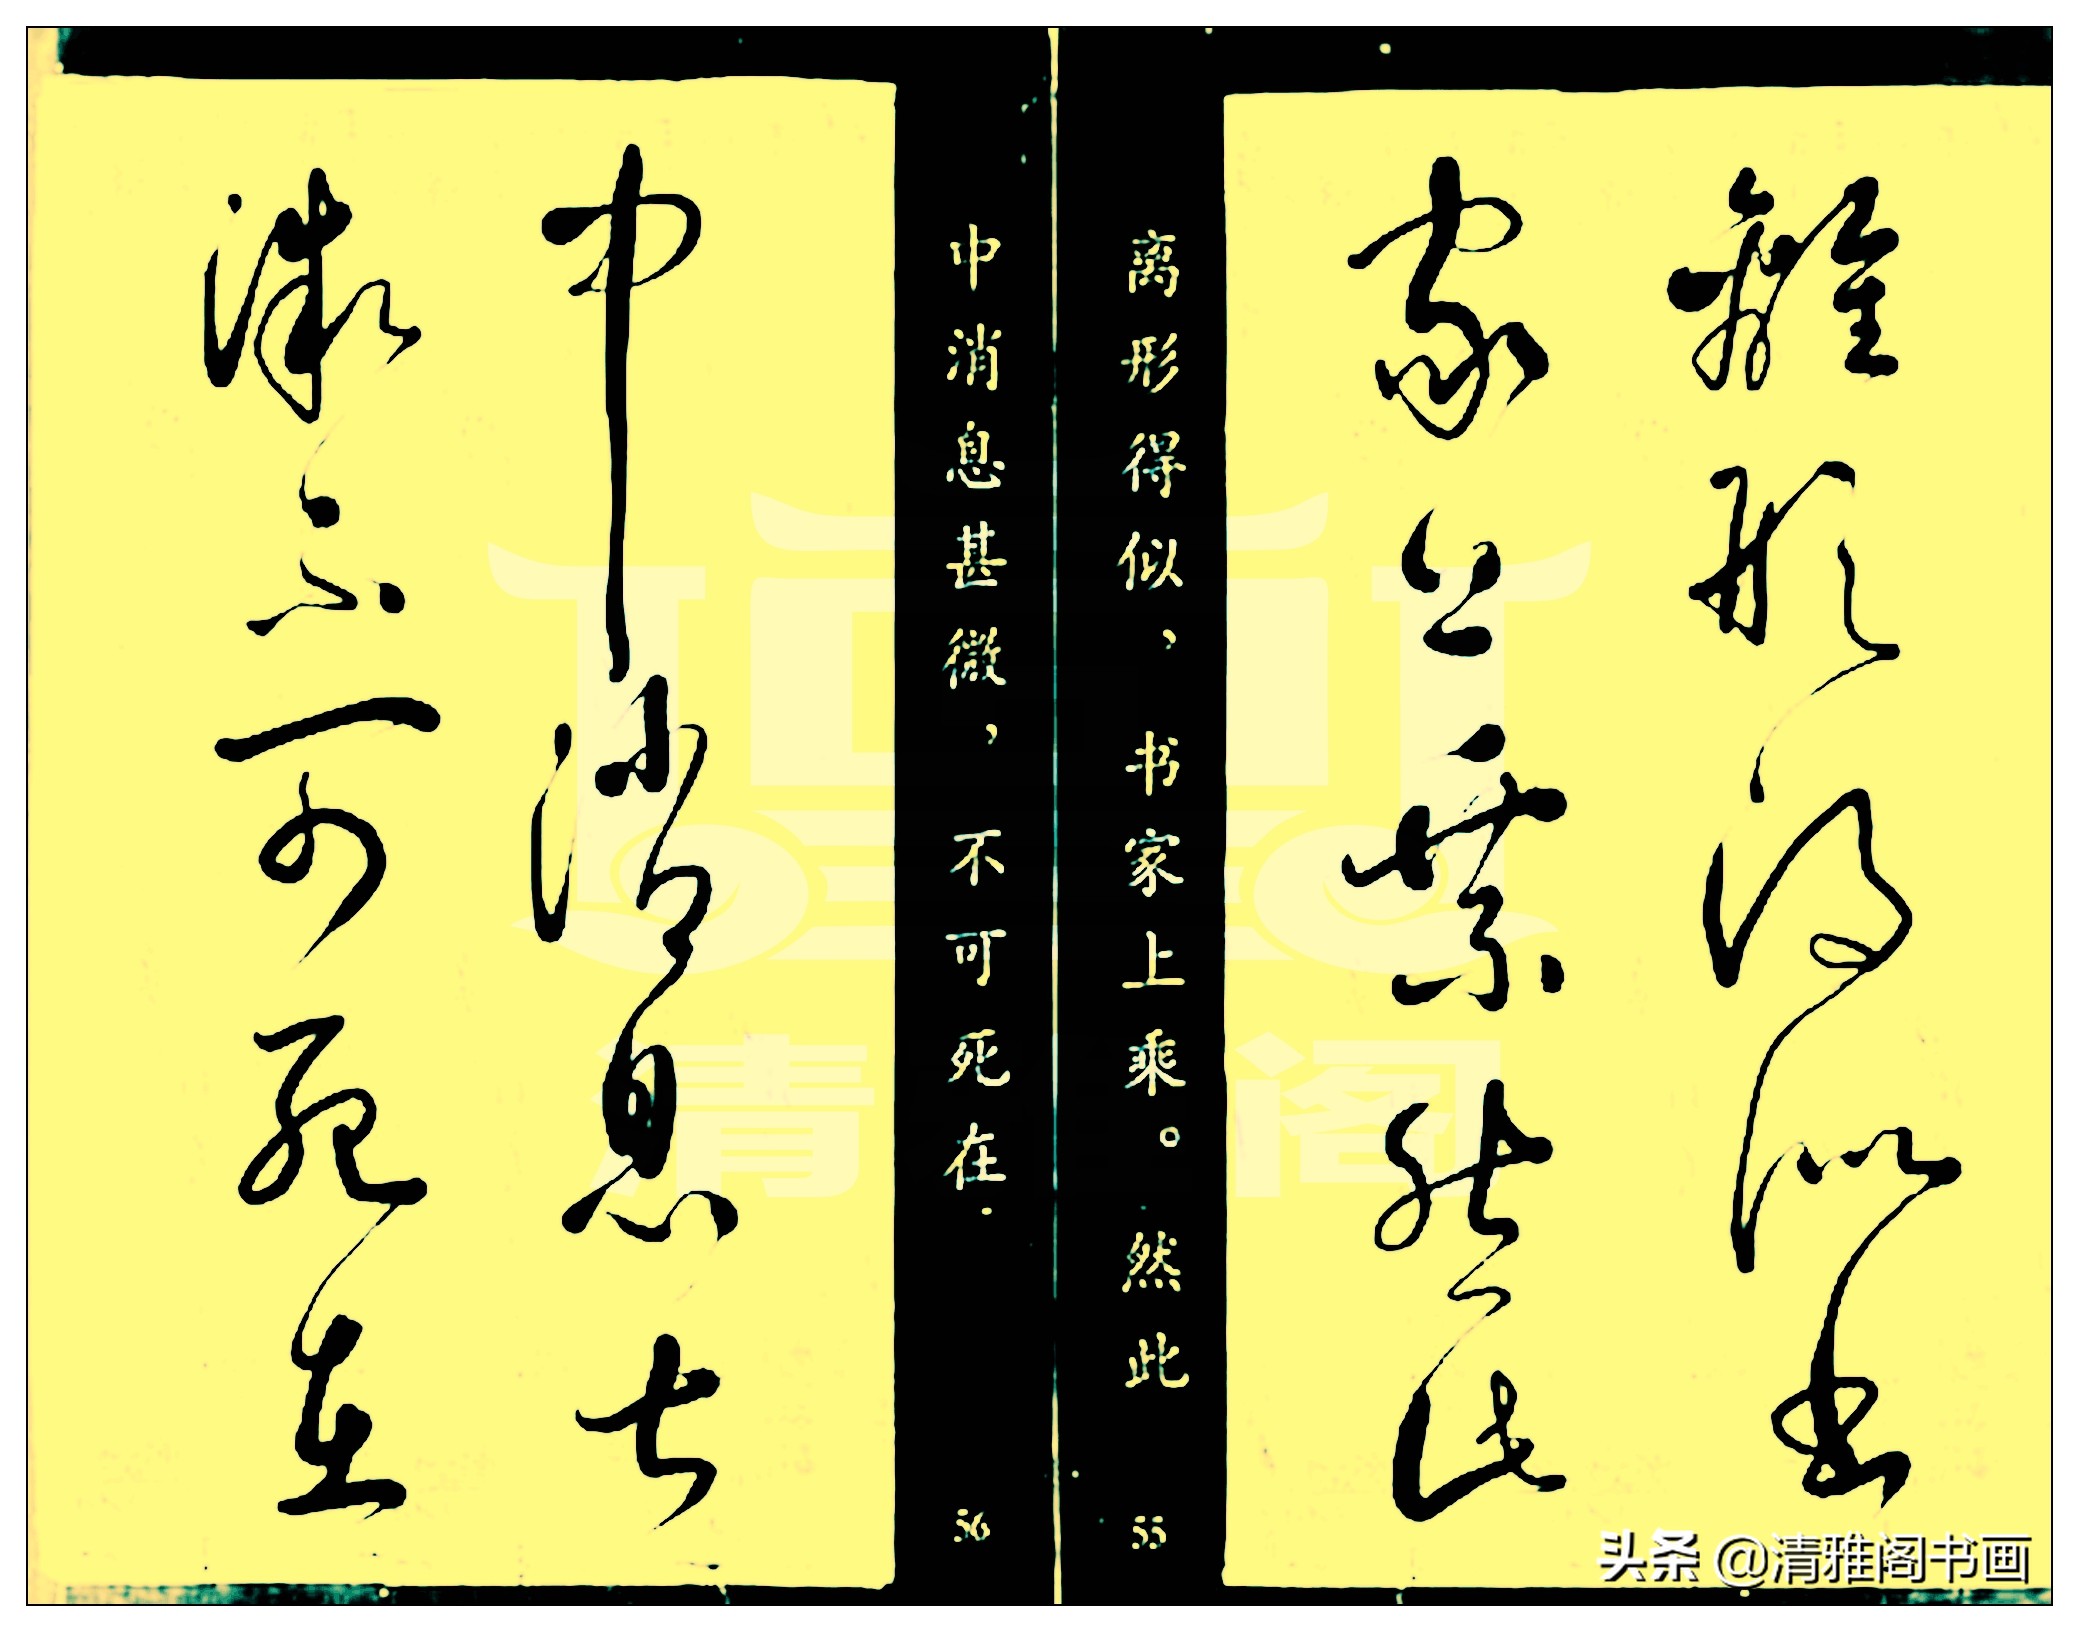 離形得似書
家上乘然此
离形得似，书家上乘。然此
55
中消息甚
微不可死在
中消息甚微，不可死在.
56
清 阁
头条 @清雅阁书画